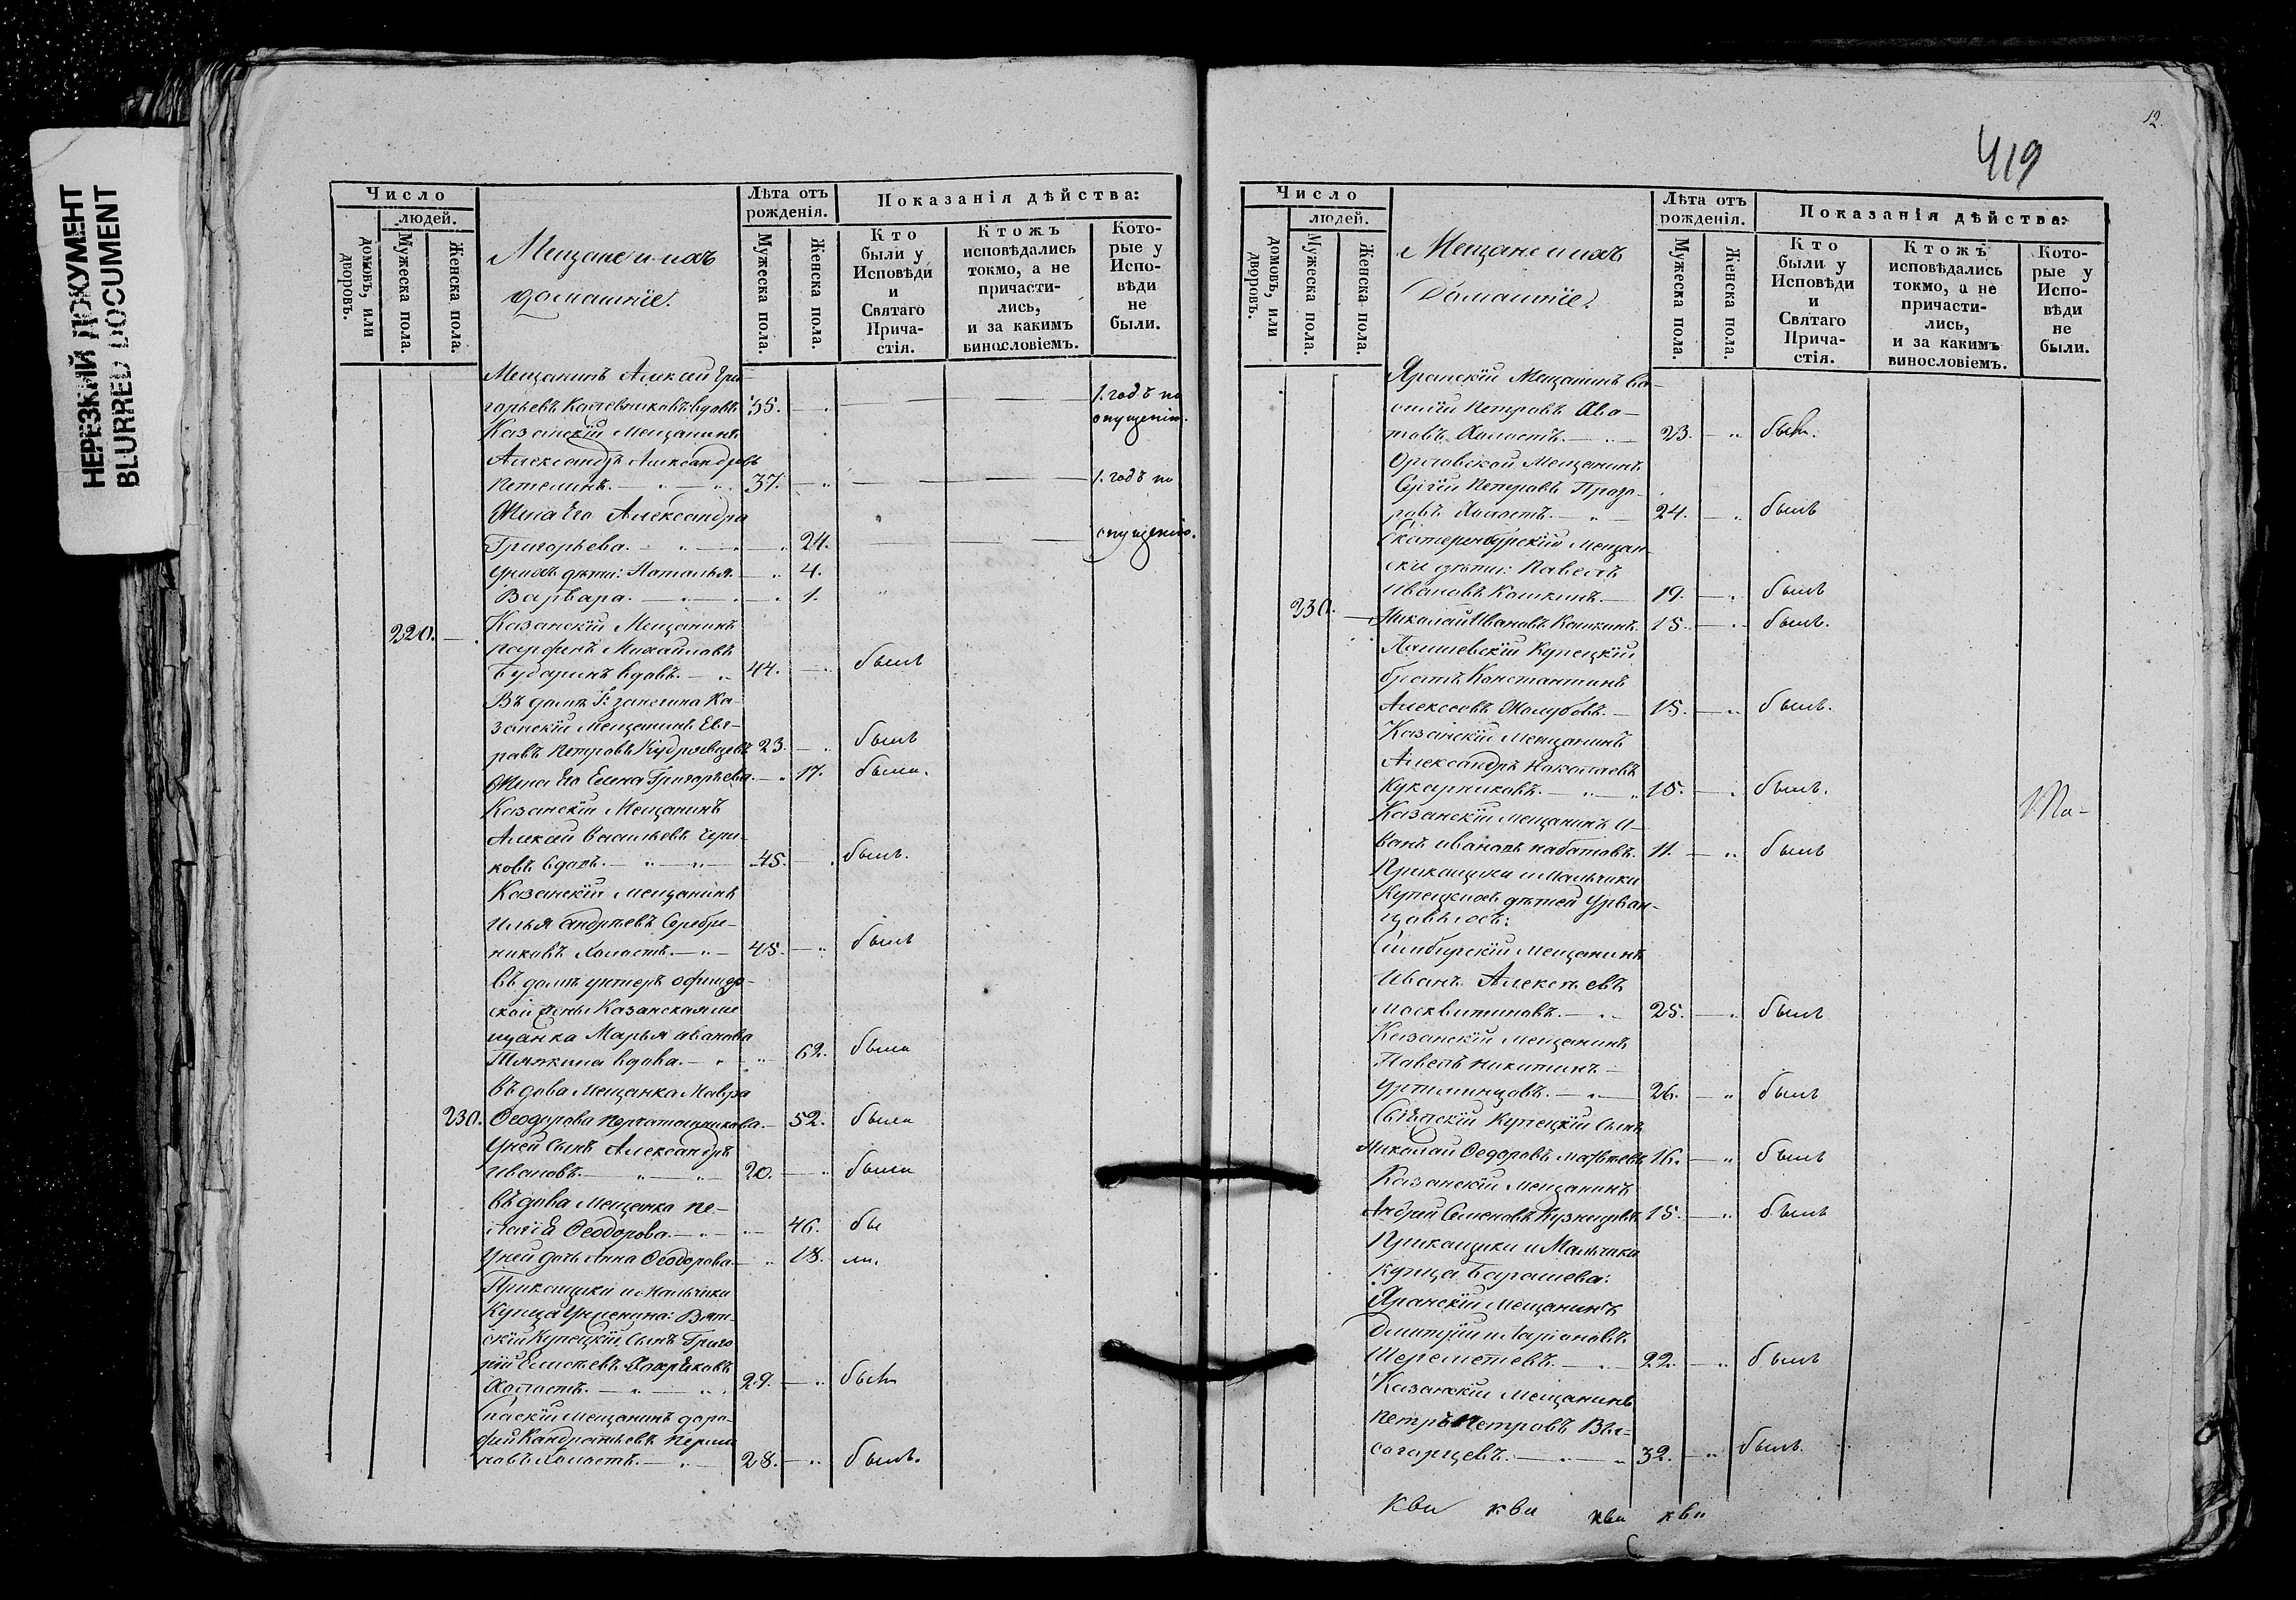 НЕРЕЗКИЙ ДОКУМЕНТ
BLURRED DOCUMENT
Число
людей.
домовъ, или дворовъ.
Мужеска пола.
Женска пола.
Мещане и ихъ
домашніе.
Лѣта отъ рожденія.
Мужеска пола.
Женска пола.
Показанія дѣйства:
Кто были у Исповѣди и Святаго Прича-стія.
Ктожъ исповѣдались токмо, а не причасти-лись, и за какимъ винословіемъ.
Кото-рые у Испо-вѣди не были.
Мещанинъ Алексей Гри-
горьевъ вдовъ 35. 1. годъ по
Казанскій Мещанинъ опущенію.
Александръ Александровъ
Петелинъ. 37. 1. годъ по
Жена Его Александра
Григорьева. 24. опущенію.
У нихъ дѣти: Наталья 4.
Варвара. 1.
Казанскій Мещанинъ
220. Михайловъ
Бударинъ вдовъ. 44. былъ
Въ домѣ Ка-
занскій Мещанинъ
Петровъ Кудрявцевъ 23. былъ
Жена Его Елена Григорьева. 17. была.
Казанскій Мещанинъ
Алексей Васильевъ
ковъ вдовъ. 45. былъ.
Казанскій Мещанинъ
Илья Андреевъ Серебре-
никовъ Холостъ. 45. былъ
Въ домѣ унтеръ офицер-
ской жены Казанская ме
щанка Марья Иванова
вдова. 62. была
Вѣдова Мещанка Мавра
230. Ѳеодорова 52. была
У ней Сынъ Александръ
Ивановъ. 20. были
Вѣдова Мещанка Пе-
лагіѣ Ѳеодорова. 46. бы
У ней дочь Анна Ѳеодорова 18. ли.
Прикащики и Мальчики
Купца Вят-
скій Купецкій Сынъ Григо
рій
Холостъ. 29. былъ
Спаскій Мещанинъ доро-
фей Кандратьевъ
Холостъ. 28. былъ.
12.
419
Число
людей.
домовъ, или дворовъ.
Мужеска пола.
Женска пола.
Мещане и ихъ
Домашніе.
Лѣта отъ рожденія.
Мужеска пола.
Женска пола.
Показанія дѣйства:
Кто были у Исповѣди и Святаго Прича-стія.
Ктожъ исповѣдались токмо, а не причасти-лись, и за какимъ винословіемъ.
Кото-рые у Испо-вѣди не были.
Яранскій Мещанинъ Ва-
силій Петровъ
Холостъ. 23. былъ.
Орловской Мещанинъ
Сергій Петровъ Прозо-
ровъ Холостъ. 24. былъ
Екатеринбурскій Мещан-
скіи дѣти: Павелъ
Ивановъ Кошкинъ. 19. былъ
230. Николай Ивановъ Кошкинъ. 15. былъ.
Лаишевскій Купецкій
братъ Константинъ
Алексеевъ 15. былъ.
Казанскій Мещанинъ
Александръ
Кукарниковъ. 15. былъ.
Казанскій Мещанинъ И-
ванъ Ивановъ Набатовъ. 11. былъ
Прикащики и Мальчики
Купецкихъ дѣтей Урван-
цовыхъ:
Симбирскій Мещанинъ
Иванъ Алексѣевъ
Москвитиновъ. 25. былъ
Казанскій Мещанинъ
Павелъ Никитинъ
26. былъ
Купецкій Сынъ
Николай Ѳедоровъ 16. былъ
Казанскій Мещанинъ
Андрей Семеновъ Кузнецовъ 15. былъ
Прикащики и Мальчики
Купца Барашева:
Яранскій Мещанинъ
Дмитрій
Шереметевъ. 22. былъ
Казанскій Мещанинъ
Петръ Петровъ Вы-
согорцевъ. 32. былъ.